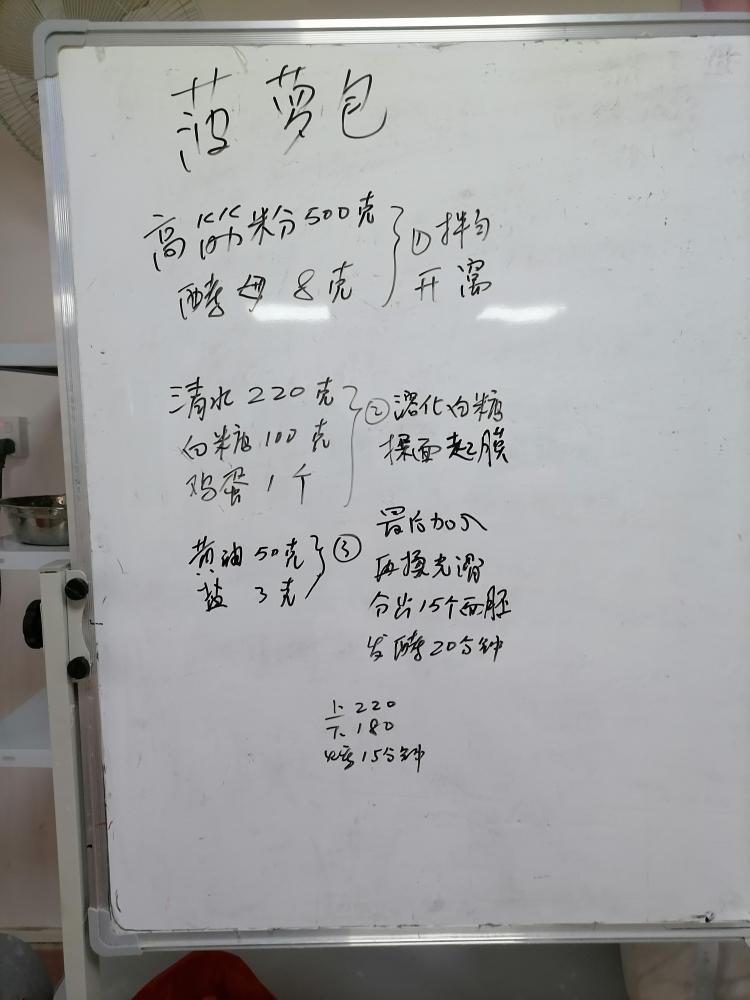 菠萝包
高筋粉500克
酵母 8克
①拌匀
开窝
清水220克
白糖100克
鸡蛋1个
②溶化白糖
揉面起膜
黄油50克
盐 3克
③
最后加入
再揉光滑
分出15个面胚
发酵20分钟
上 220
下 180
火候15分钟